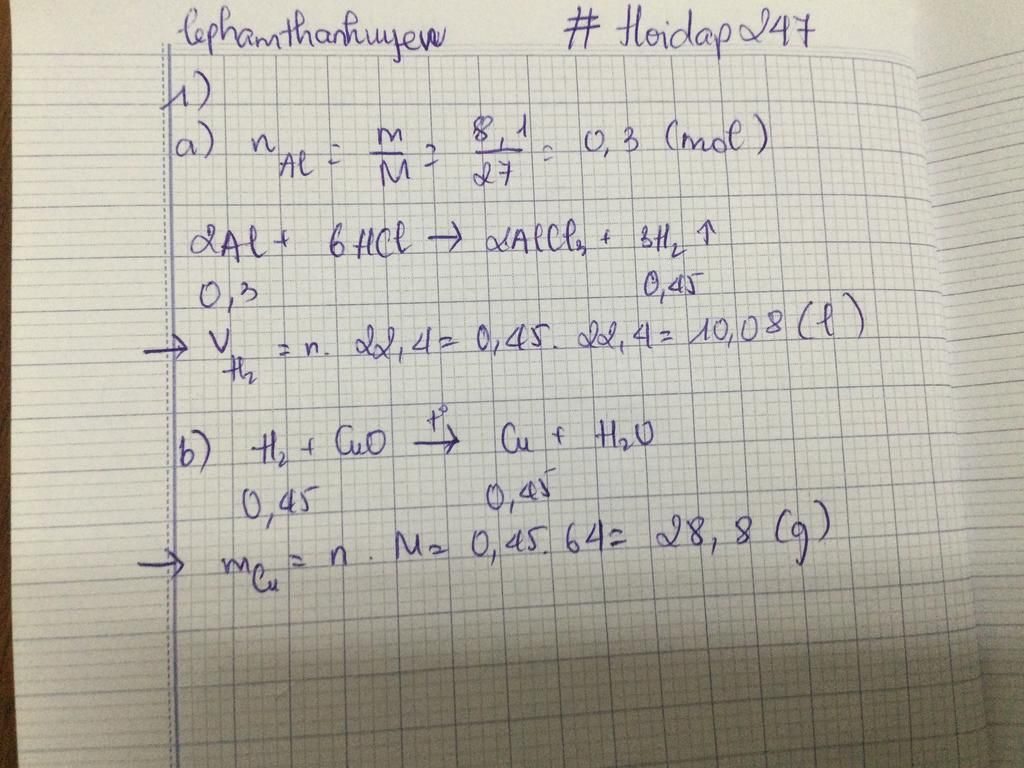 lephamthanhuyen # Hoidap247
1)
a) n_Al = m/M = 8,1/27 = 0,3 (mol)
2Al + 6HCl → 2AlCl₃ + 3H₂ ↑
0,3 0,45
→ V_H₂ = n. 22,4 = 0,45. 22,4 = 10,08 (l)
b) H₂ + CuO —t°→ Cu + H₂O
0,45 0,45
→ m_Cu = n . M = 0,45. 64 = 28,8 (g)